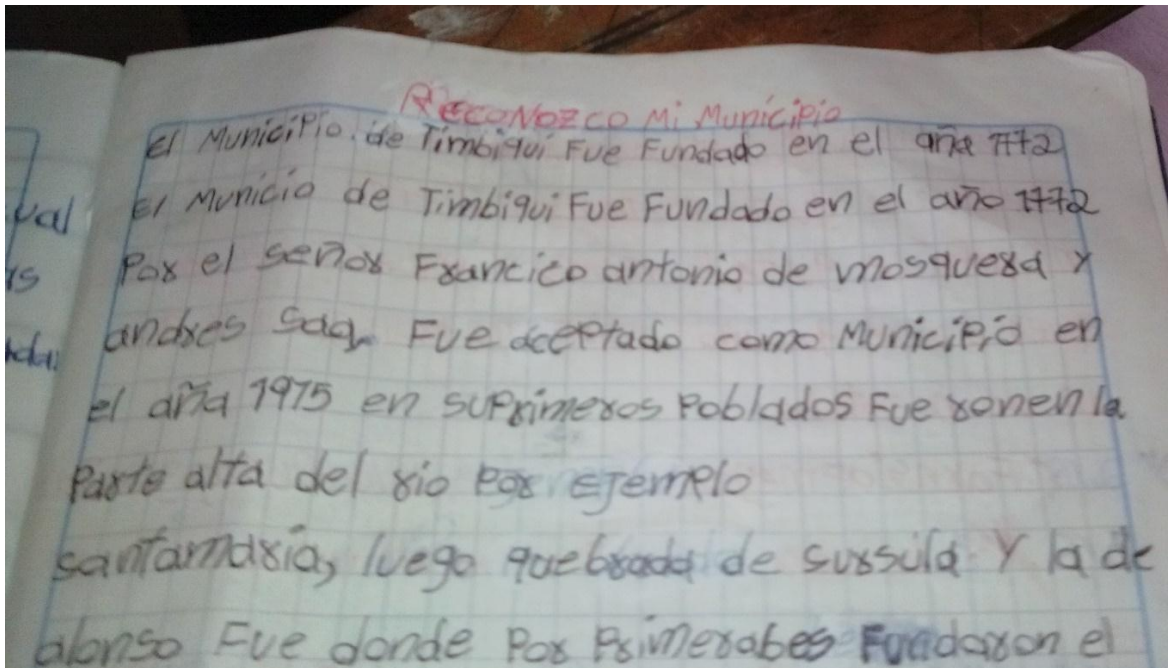 ReCoNozco Mi Municipio
El Municipio de Timbiqui Fue Fundado en el aña 1772
El Municio de Timbiqui Fue Fundado en el año 1772
Por el señor Francico antonio de mosquera y
andres Saa. Fue aceptado como Municipio en
el aña 1975 en suprimeros Poblados Fue ronen la
Parte alta del rio Por EJemplo
santamaria, luego quebrada de sursula Y la de
alonso Fue donde Por Primerabes Fundaron el